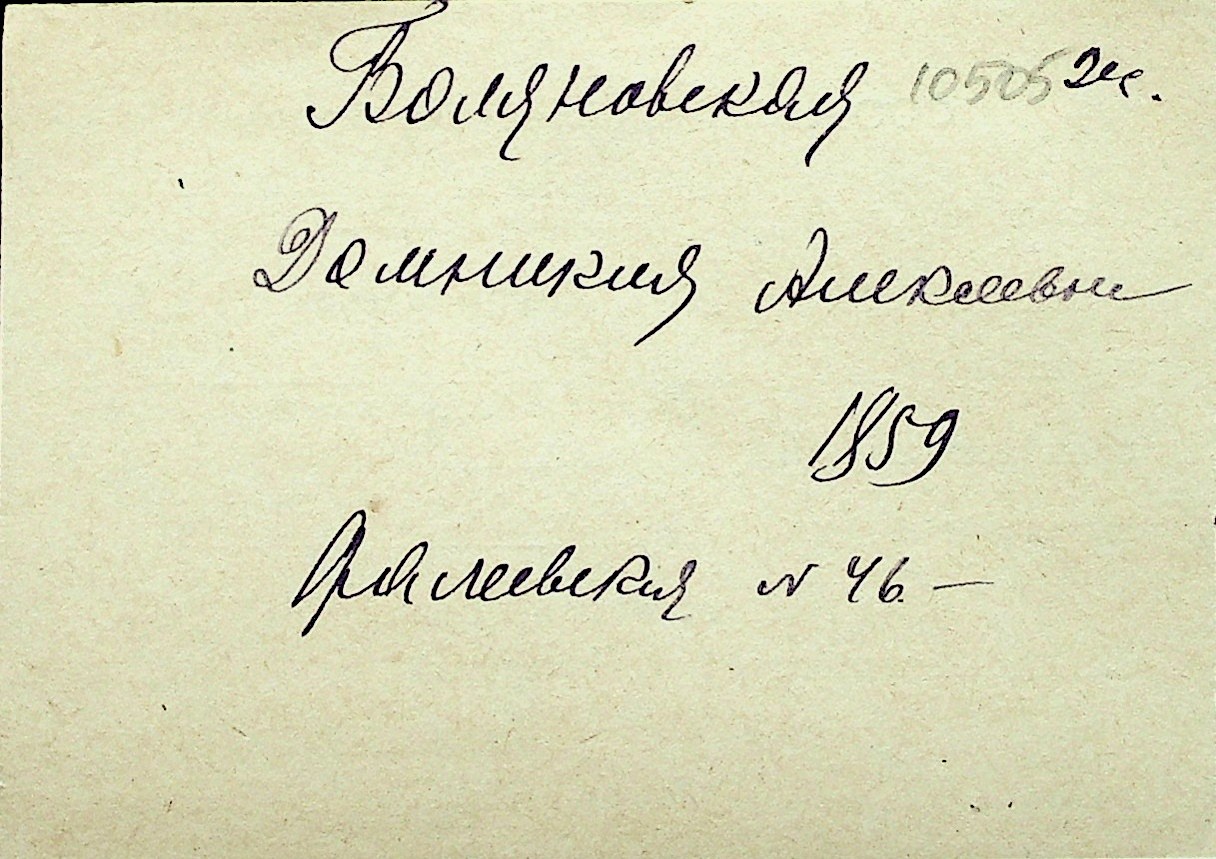 Воляновская 10505 Ж.
Домникия Алексеевн
1859
Фалеевская N 46. —